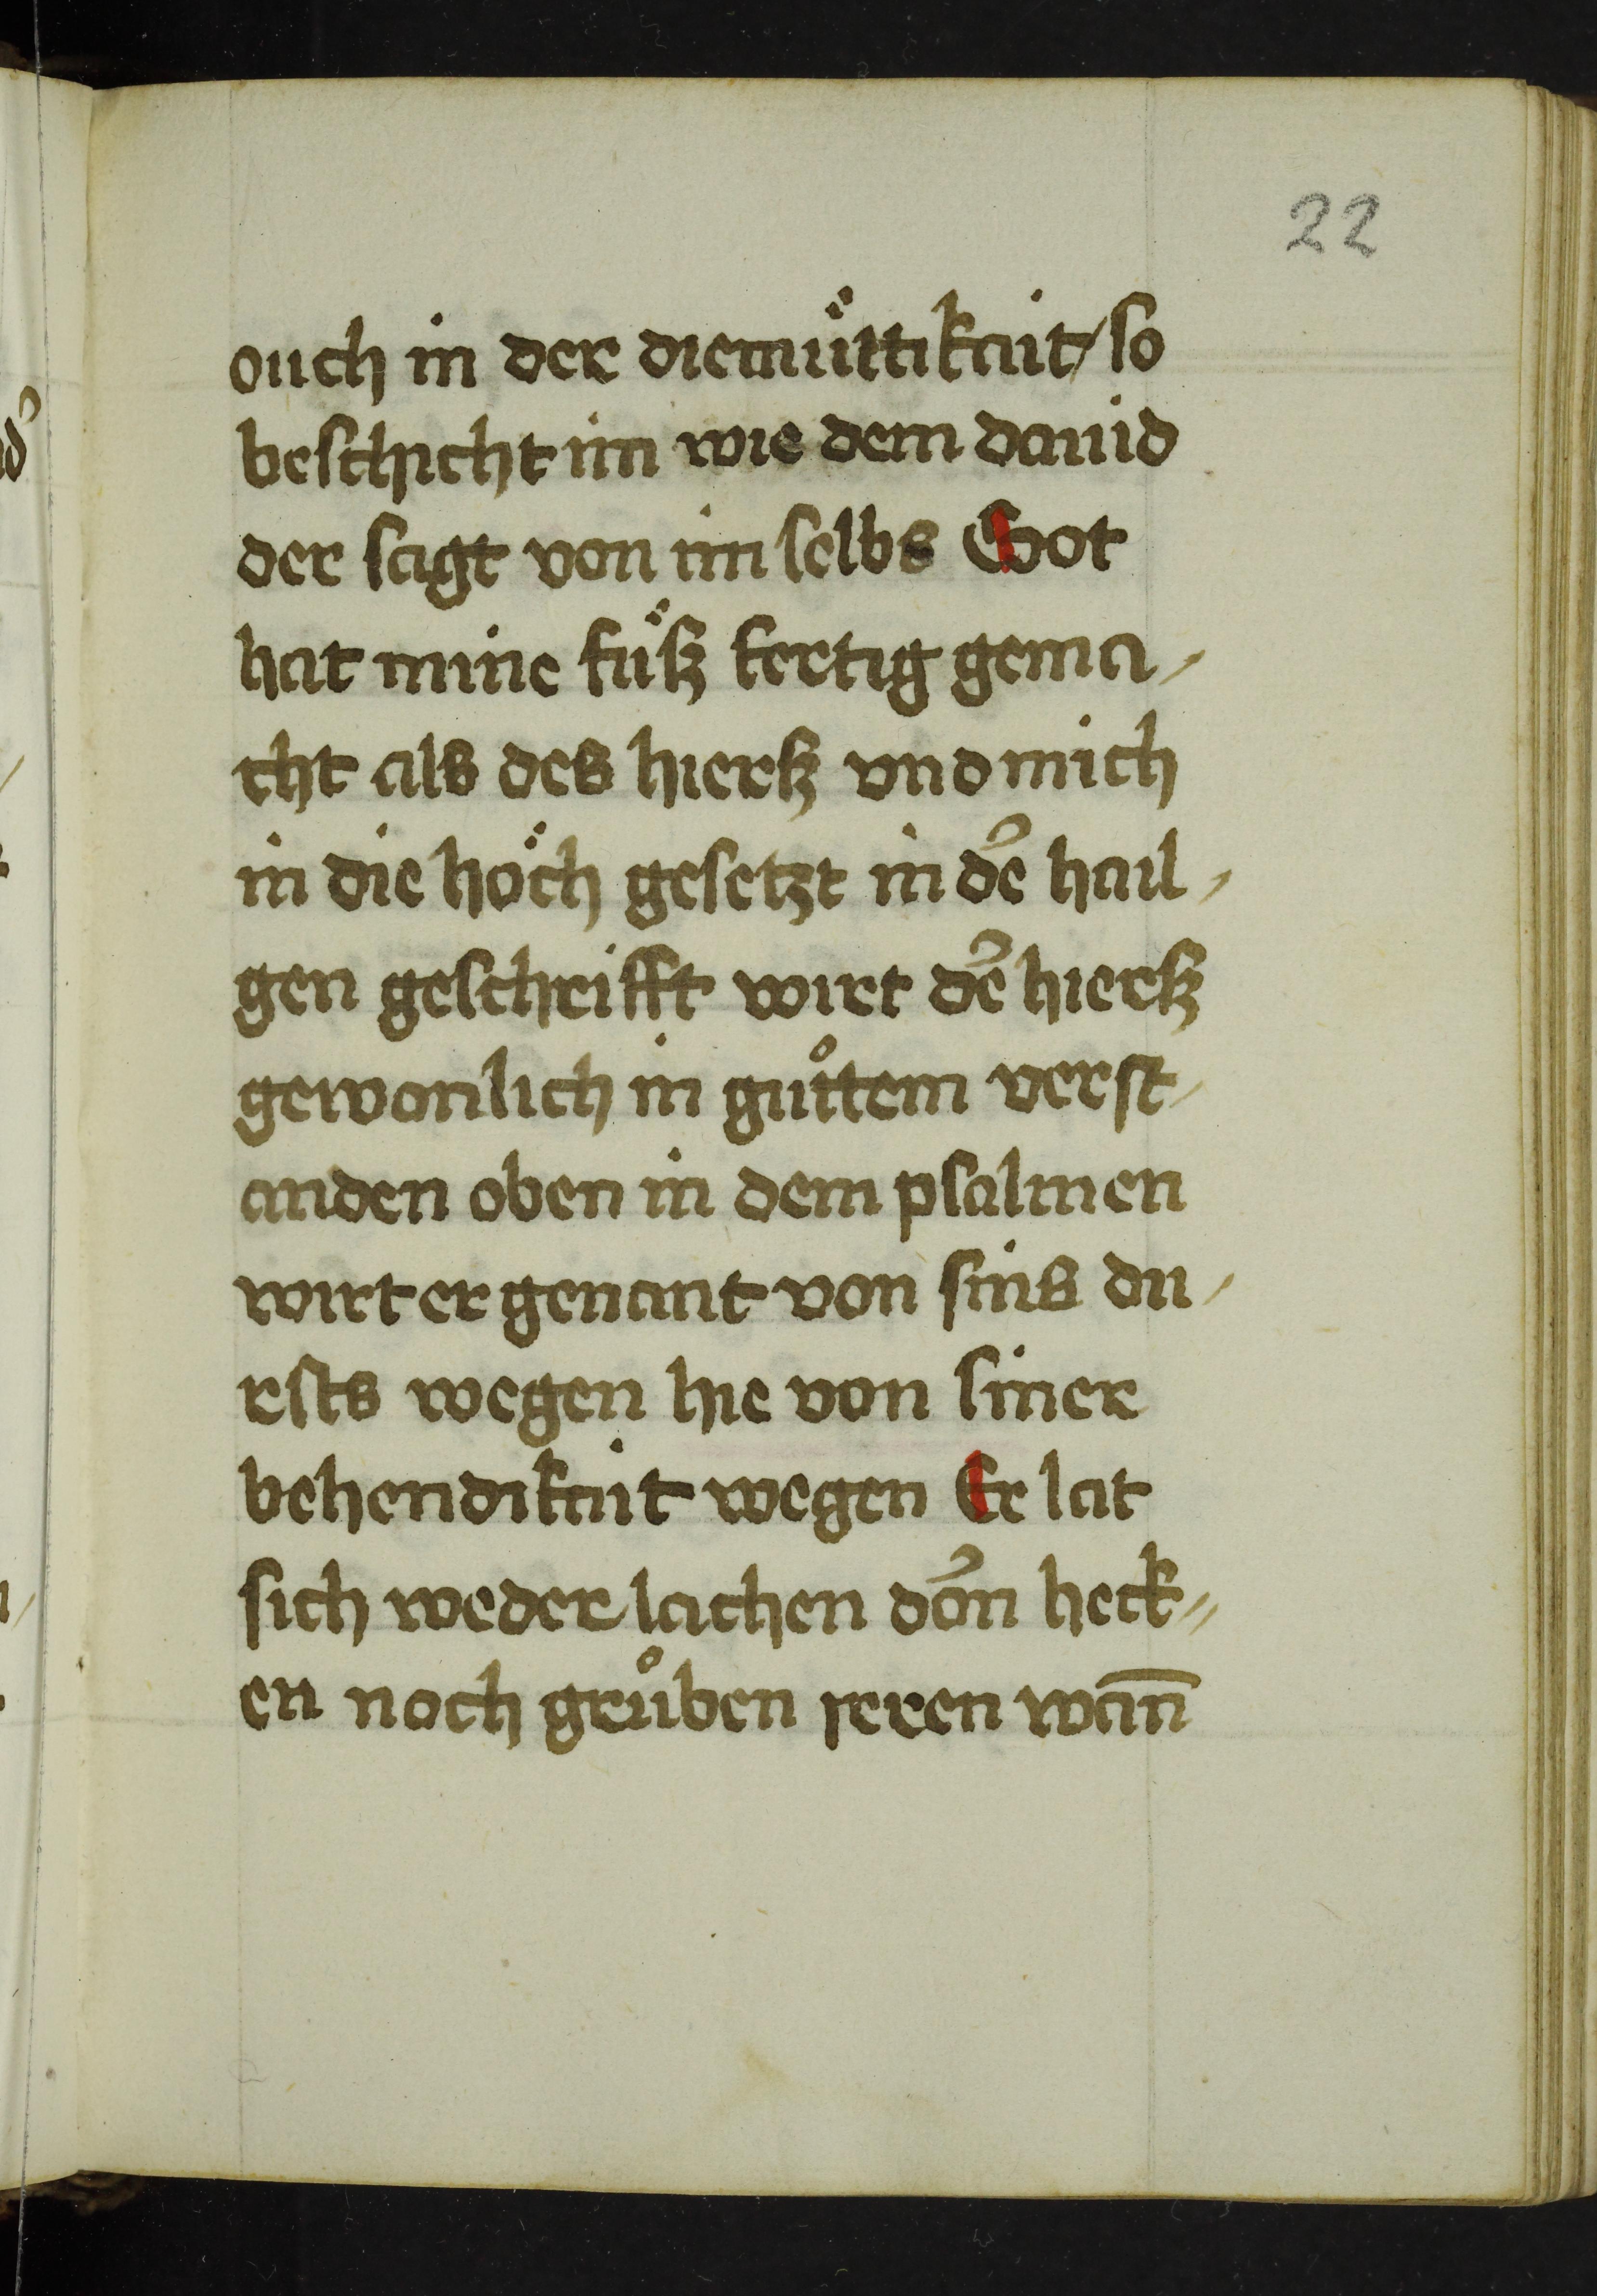 22
ouch in der diemu̎ttikait / so
beschicht im wie dem dauid
der sagt von im selbs Got
hat mine fu̎ſz fertig gema /
cht als des hierſz vnd mich
in die ho̎ch gesetzt in de᷑ hail /
gen geschrifft wirt de᷑ hierſz
gewonlich in gůttem verst /
anden oben in dem psalmen
wirt er genant von sins du /
rsts wegen hie von siner
behendikait wegen Er lat
sich weder lachen do᷑n heck //
en noch grůben irren wan̅